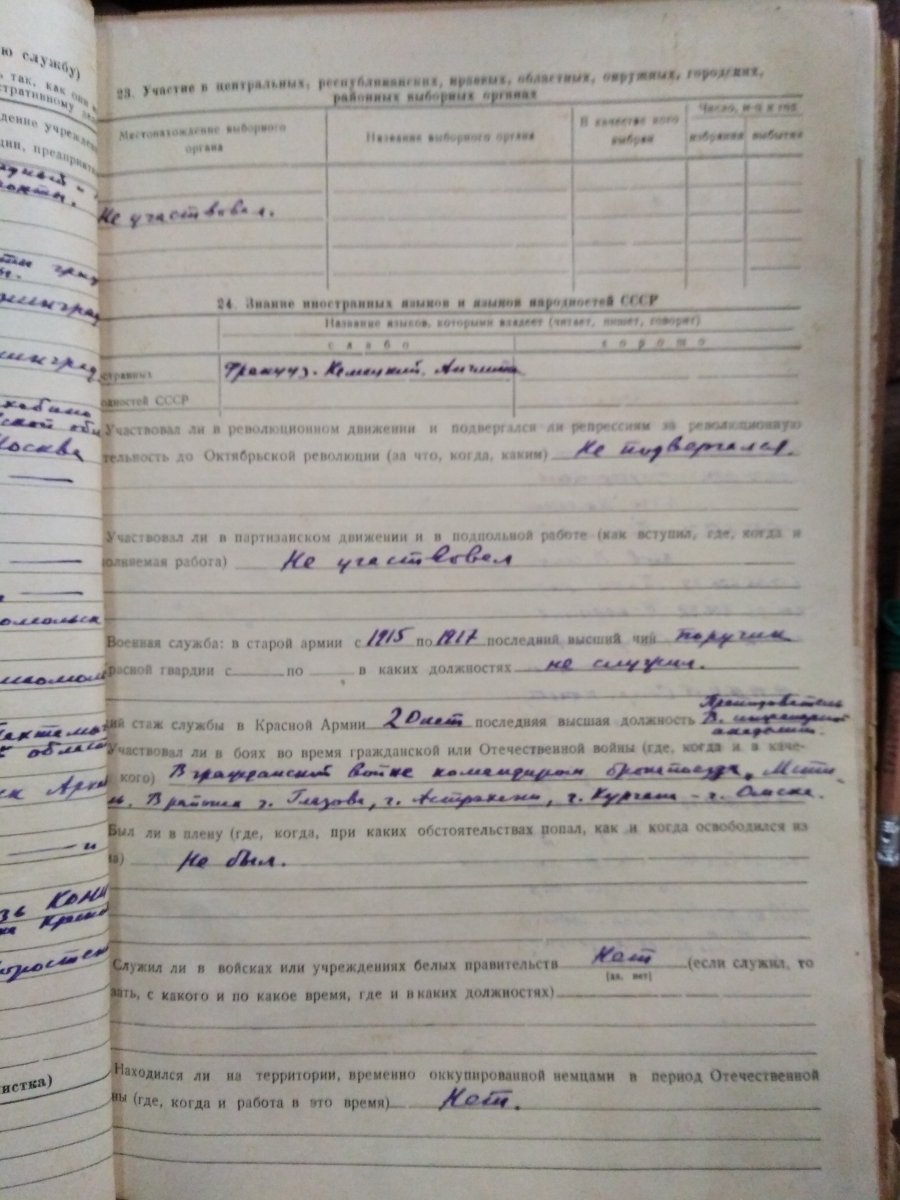 ю службу)
так, как они
23. Участие в центральных, республиканских, краевых, областных, окружных, городских,
районных выборных органах
Местонахождение выборного
органа
Название выборного органа
В качестве кого
выбран
Число, м-ц и год
избрания
выбытия
Не участвовал.
24. Знание иностранных языков и языков народностей СССР
Название языков, которыми владеет (читает, пишет, говорит)
слабо
хорошо
странных
Француз. Немецкий. Английск
одностей СССР
Участвовал ли в революционном движении и подвергался ли репрессиям за революционную
тельность до Октябрьской революции (за что, когда, каким) Не подвергался.
Участвовал ли в партизанском движении и в подпольной работе (как вступил, где, когда и
олняемая работа) Не участвовал
Военная служба: в старой армии с 1915 по 1917 последний высший чин поручик
расной гвардии с по в каких должностях не служил.
ий стаж службы в Красной Армии 20 лет последняя высшая должность Преподаватель
В. инженерной
академии.
Участвовал ли в боях во время гражданской или Отечественной войны (где, когда и в каче-
кого) В гражданской войне командиром бронепоезда „Мсти-
ль. В районах г. Глазова, г. Астрахани, г. Кургана - г. Омска.
Был ли в плену (где, когда, при каких обстоятельствах попал, как и когда освободился из
на) Не был.
Служил ли в войсках или учреждениях белых правительств Нет (если служил, то
[да, нет]
зать, с какого и по какое время, где и в каких должностях)
Находился ли на территории, временно оккупированной немцами в период Отечественной
ны (где, когда и работа в это время) Нет.
Москва
истка)